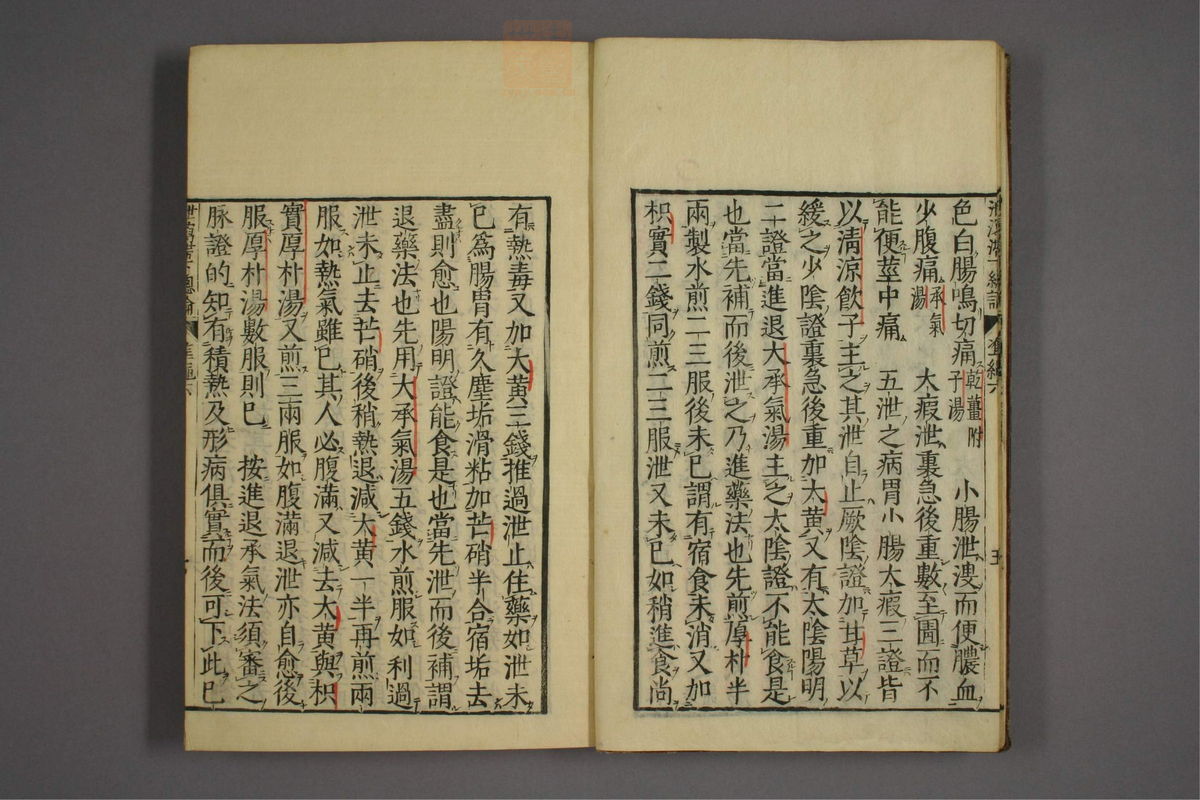 色白腸鳴切痛乾薑附子湯　小腸泄溲而便膿血
少腹痛承氣湯　大瘕泄裏急後重數至圊而不
能便莖中痛　五泄之病胃小腸大瘕三證皆
以淸涼飮子主之其泄自止厥陰證加甘草以
緩之少陰證裏急後重加大黃又有太陰陽明
二證當進退大承氣湯主之太陰證不能食是
也當先補而後泄之乃進藥法也先煎厚朴半
兩製水煎二三服後未已謂有宿食未消又加
枳實二錢同煎二三服泄又未已如稍進食尚
有熱毒又加大黃三錢推過泄止住藥如泄未
已為腸胃有久塵垢滑粘加芒硝半合宿垢去
盡則愈也陽明證能食是也當先泄而後補謂
退藥法也先用大承氣湯五錢水煎服如利過
泄未止去芒硝後稍熱退減大黃一半再煎兩
服如熱氣雖已其人必腹滿又減去大黃與枳
實厚朴湯又煎三兩服如腹滿退泄亦自愈後
服厚朴湯數服則已　按進退承氣法須審之
脉證的知有積熱及形病俱實而後可下此已